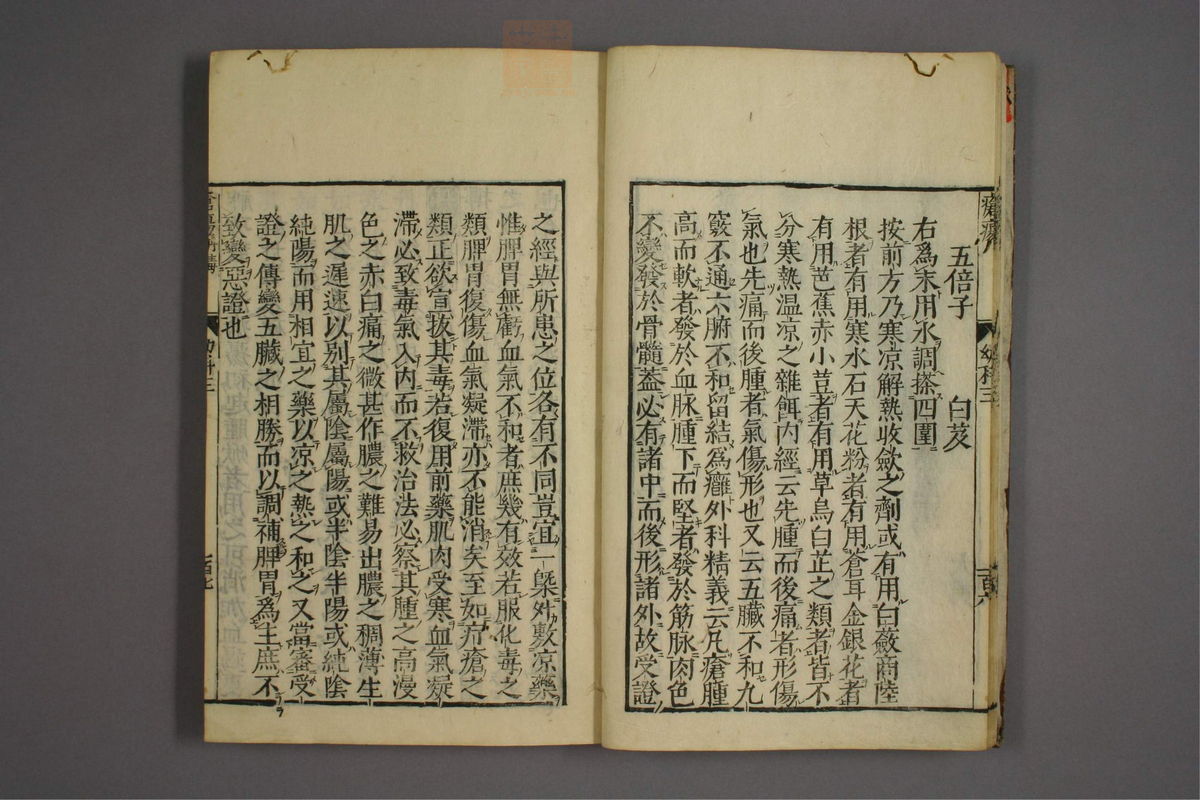 五倍子　白芨
右爲末用水調搽四圍
按前方乃寒凉解熱收歛之劑或有用白蘞商陸
根者有用寒水石天花粉者有用蒼耳金銀花者
有用芭蕉赤小荳者有用草烏白芷之類者皆不
分寒熱温凉之雜餌内經云先腫而後痛者形傷
氣也先痛而後腫者氣傷形也又云五臓不和九
竅不通六腑不和留結爲癰外科精義云凡瘡腫
高而軟者發於血脉腫下而堅者發於筋脉肉色
不變發於骨髓葢必有諸中而後形諸外故受證
之經與所患之位各有不同豈宜一槩外敷凉藥
惟脾胃無虧血氣不和者庶幾有效若服化毒之
類脾胃復傷血氣凝滯亦不能消矣至如疔瘡之
類正欲宣拔其毒若復用前藥肌肉受寒血氣凝
滯必致毒氣入内而不救治法必察其腫之高漫
色之赤白痛之微甚作膿之難易出膿之稠薄生
肌之遲速以别其屬陰屬陽或半陰半陽或純陰
純陽而用相宜之藥以凉之熱之和之又當審受
證之傳變五臓之相勝而以調補脾胃爲主庶不
致變惡證也